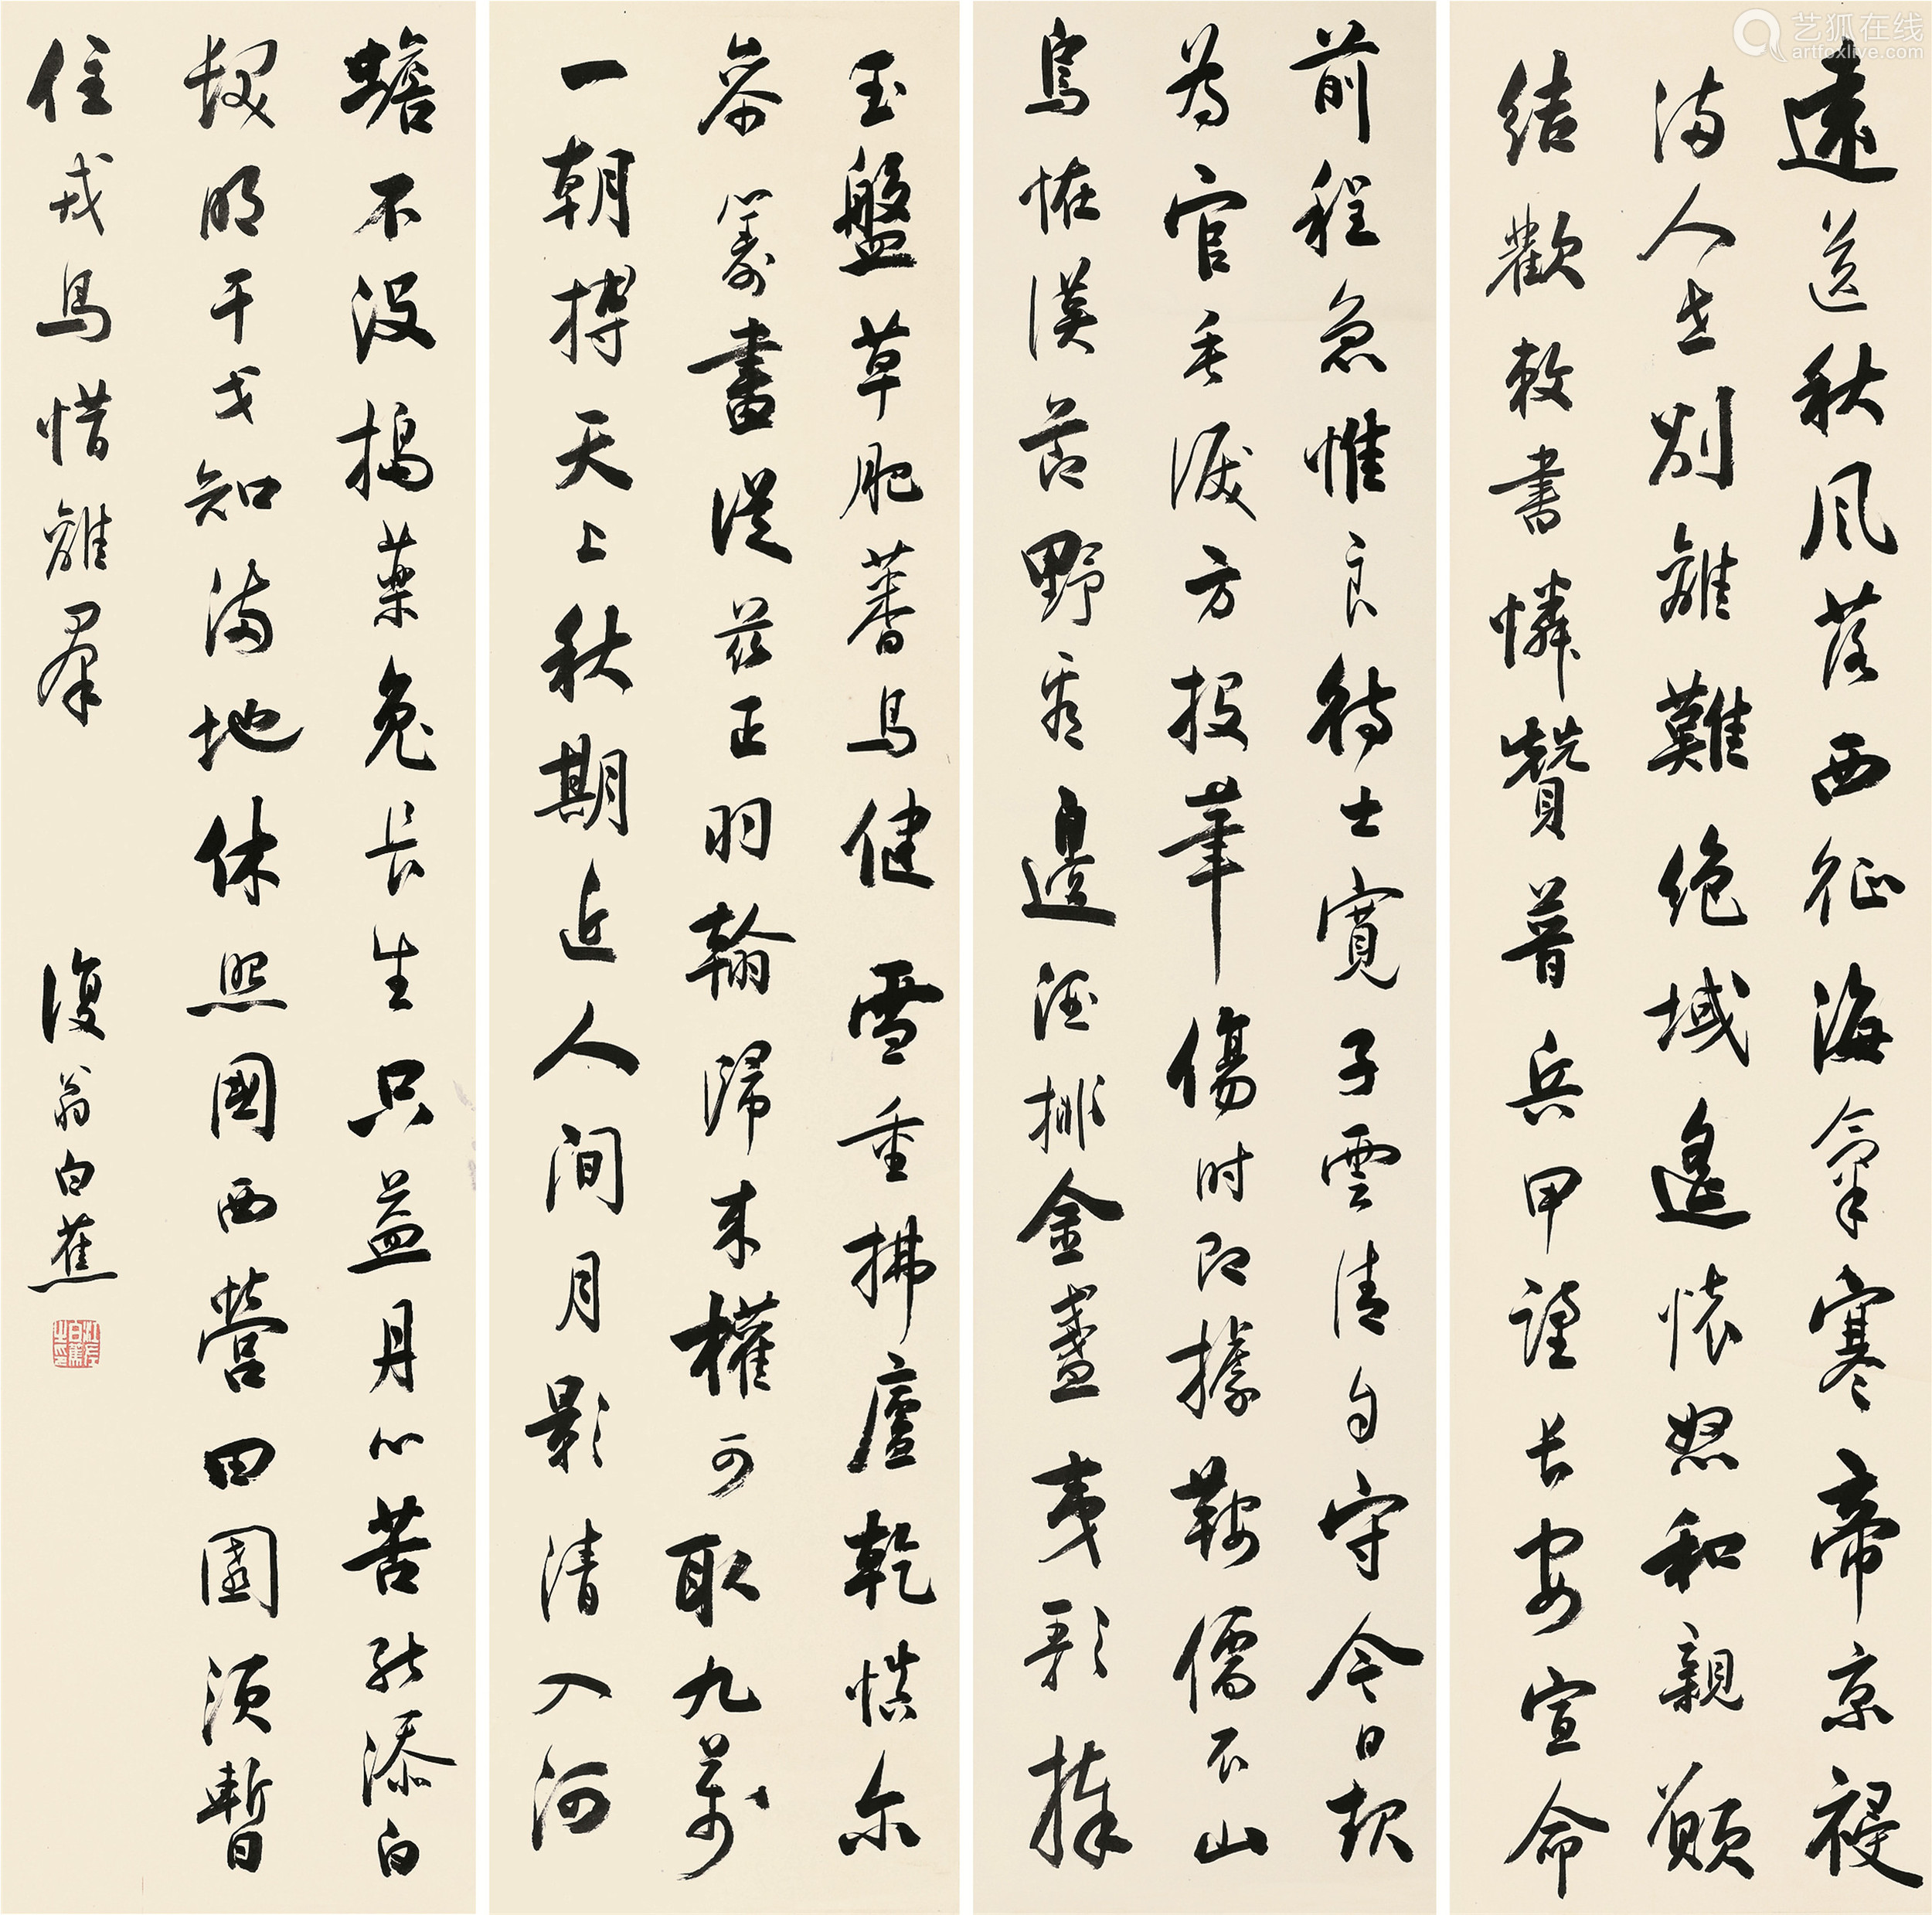 遠送秋風落西征海氣寒帝京祲
滿人世別離難絕域遙懷怒和親願
結歡敕書憐贊普兵甲望長安宣命
前程急惟良待士寬子雲清自守今日起
為官垂淚方投筆傷時即據鞍儒衣山
鳥怪漢節野看邊酒排金盞夷歌捧
玉盤草肥蕃馬健雪重拂廬乾慎爾
參籌畫從茲正羽翰歸來權可取九萬
一朝摶天上秋期近人間月影清入河
蟾不沒搗藥兔長生只益丹心苦能添白
髮明干戈知滿地休照國西營田園須暫
住戎馬惜離羣 復翁白蕉
艺狐在线
artfoxlive.com